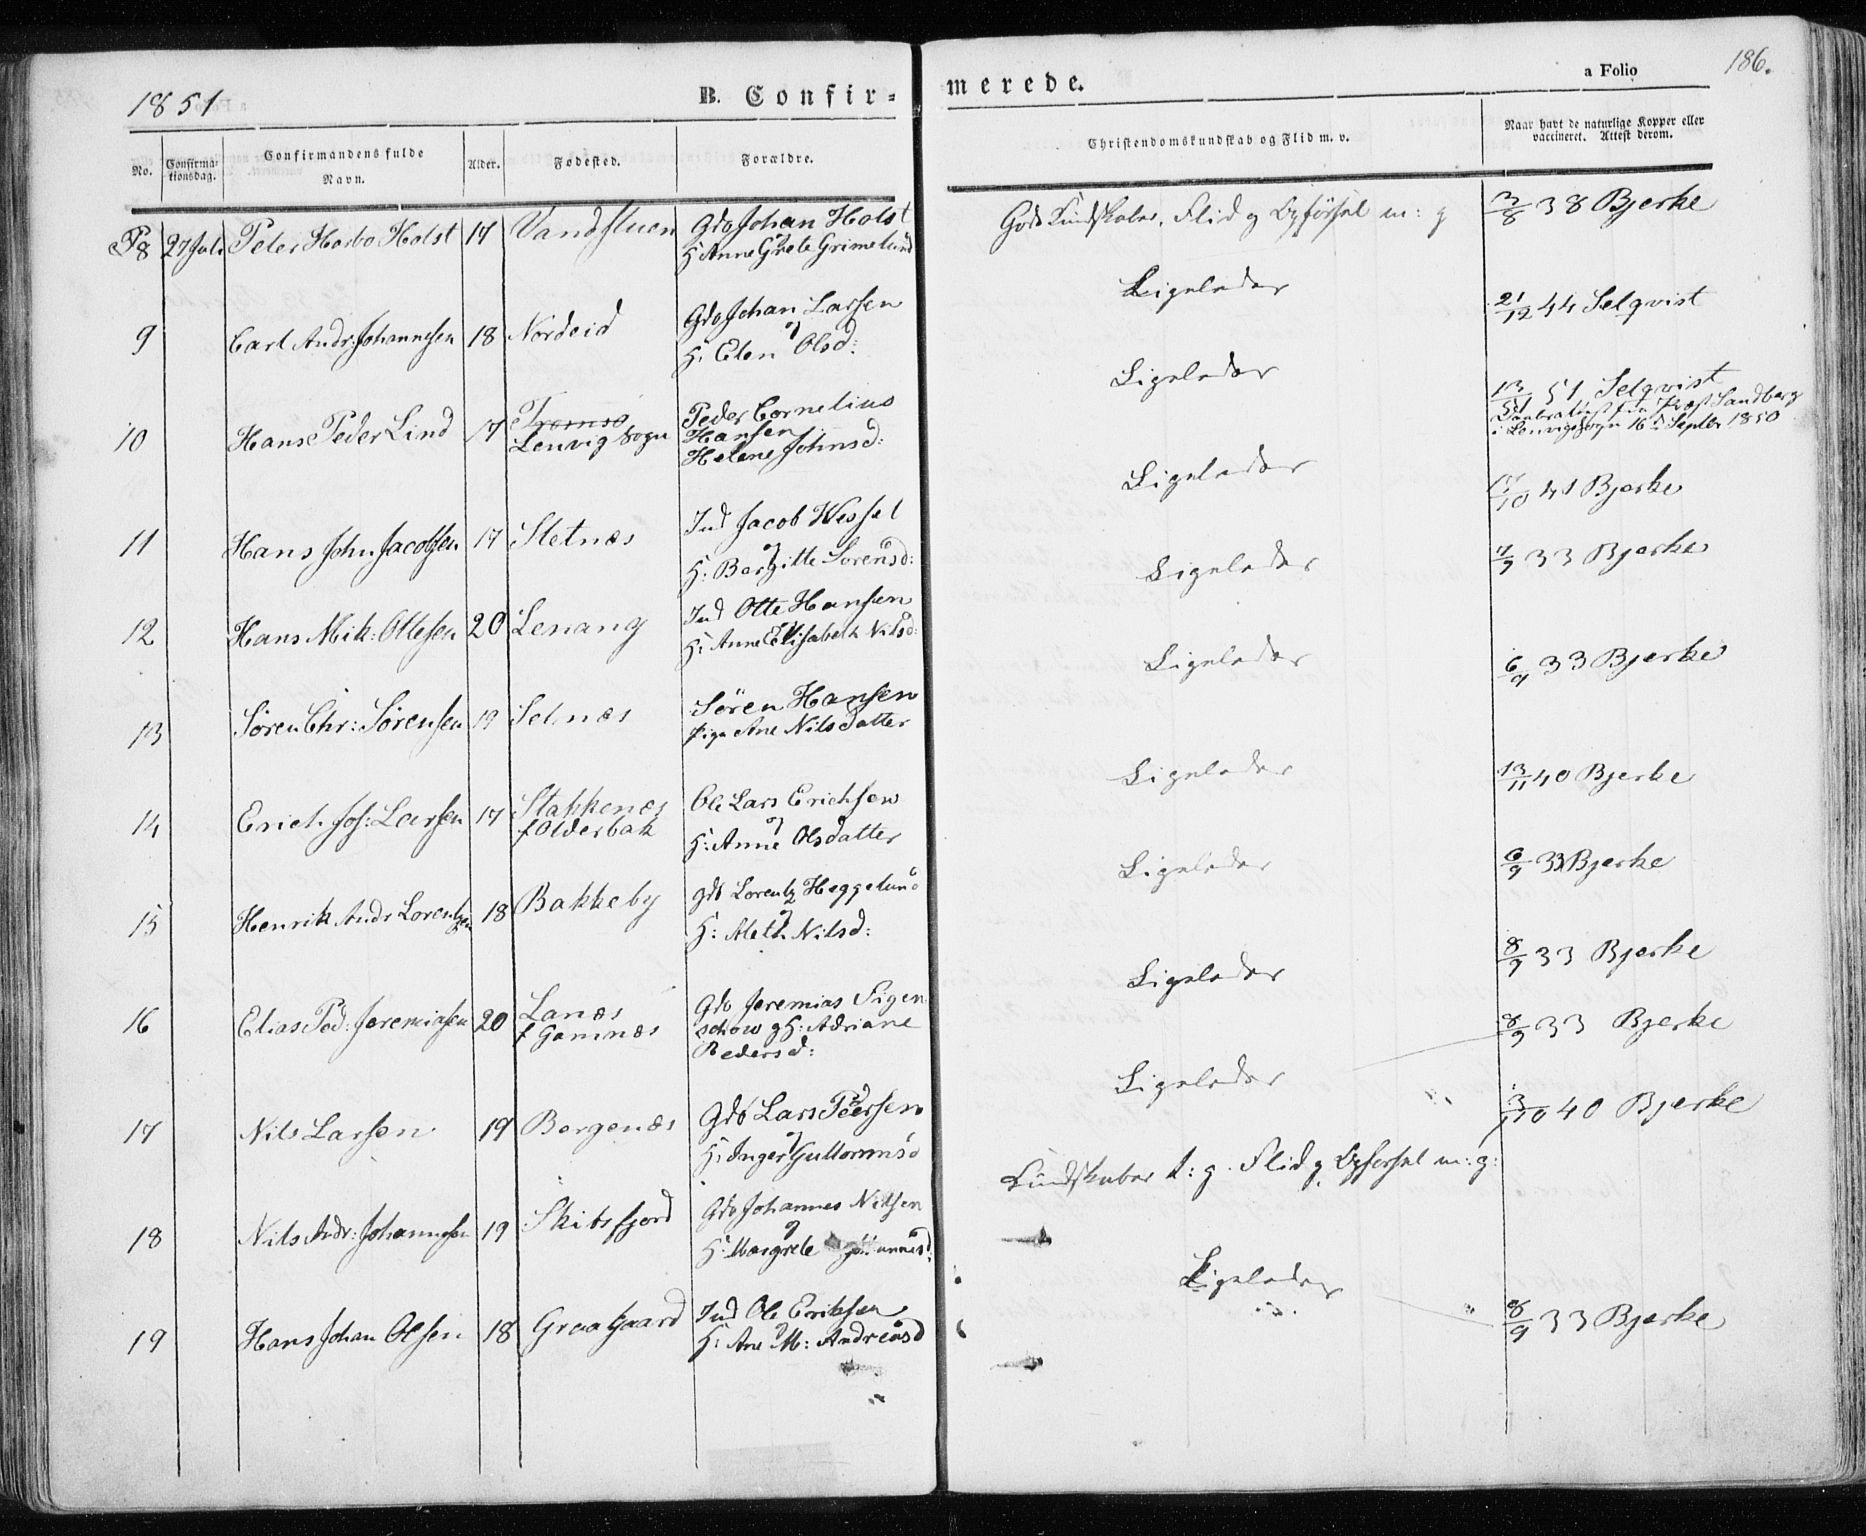 1851
B. Confir-
merede.
a Folio
186.
No.
Confirma-
tionsdag.
Confirmandens fulde
Navn.
Alder.
Fødested.
Forældre.
Christendomskundskab og Flid m. v.
Naar havt de naturlige Kopper eller
vaccineret. Attest derom.
8 27 Juli Peter Harbo Holst 17 Vandstuen Gdb Johan Holst
H: Anne Grete Grimelund
Gode Kundskaber, Flid og Opførsel m: g
3/8 38 Bjerke
9 Carl Andr: Johannesen 18 Nordeid Gdb Johan Larsen
og
H: Elen Olsd:
Ligeledes
21/12 44 Selqvist
10 Hans Peder Lind 17 Tromsø
Lenvig Sogn
Peder Cornelius
Hansen
Helene Johnsd:
Ligeledes
13/ 51 Selqvist
Sandberg
i Lenvig Sogn 16de Septbr 1850
11 Hans John Jacobsen 17 Sletnæs Ind Jacob Wessel
og
H: Bergitte Sørensd:
Ligeledes
17/10 41 Bjerke
12 Hans Mik: Ottesen 20 Lenang Ind Otte Hansen
H: Anne Elisabeth Nilsd:
Ligeledes
7/9 33 Bjerke
13 Søren Chr: Sørensen 19 Selnæs Søren Hansen
Pige Ane Nilsdatter
Ligeledes
6/9 33 Bjerke
14 Erich Joh: Larsen 17 Stakkenæs
f Olderbak
Ole Lars Erichsen
og
H: Anne Olsdatter
Ligeledes
13/11 40 Bjerke
15 Henrik Andr Lorentzen 18 Bakkeby Gdb Lorentz Heggelund
og
H: Meth Nilsd:
Ligeledes
6/9 33 Bjerke
16 Elias Ped: Jeremiasen 20 Lanæs
f Gamnæs
Gdb Jeremias Figen
schow og H: Adriane
Pedersd:
Ligeledes
8/9 33 Bjerke
17 Nils Larsen 19 Bergenæs Gdb Lars Peersen
og
H: Inger Guttormsd
Ligeledes
8/9 33 Bjerke
18 Nils Andr: Johannesen 19 Skitsfjord Gdb Johannes Nilsen
og
H: Margrete Johannesd:
Kundskaber t: g. Flid og Opførsel m: g:
3/10 40 Bjerke
19 Hans Johan Olsen 18 Graagaard Ind Ole Eriksen
og
H: Ane M: Andreasd
Ligeledes
8/9 33 Bjerke